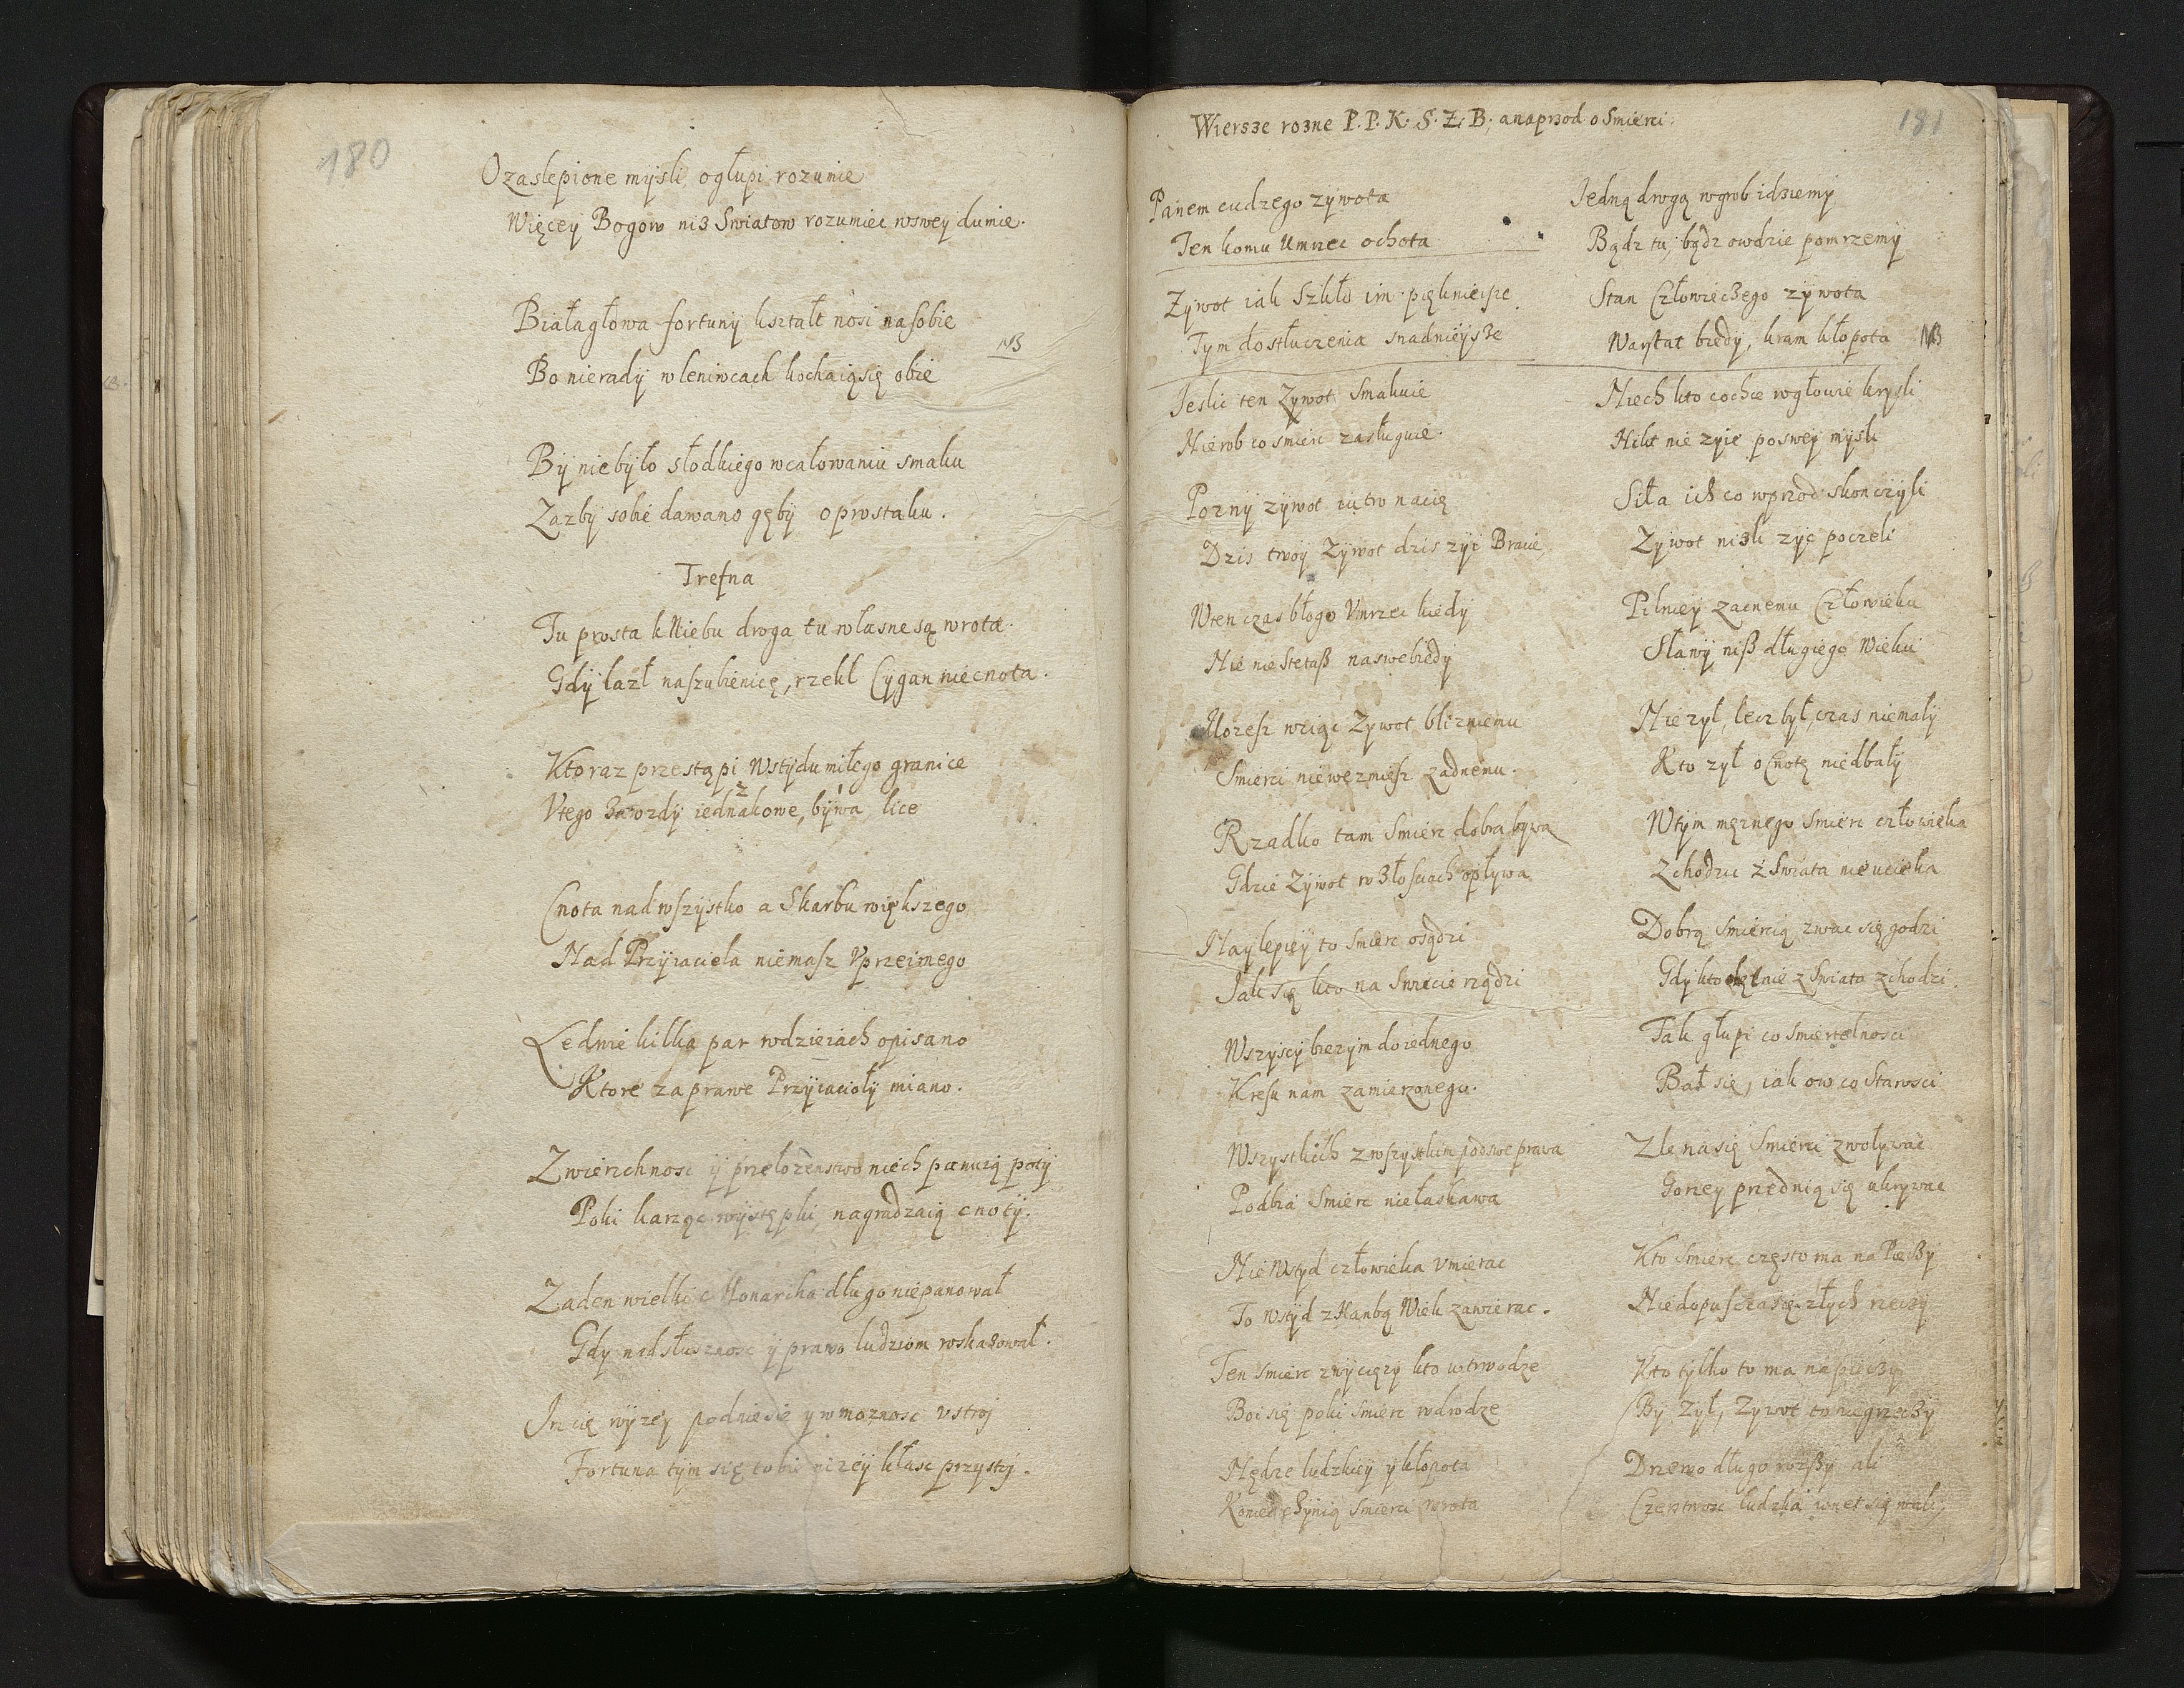 180
O zaslepione mysli, o głupi rozumie
Więcey Bogow niz Swiatow rozumiec wswey dumie.
Białagłowa fortuny kształt nosi nasobie
NB
Bo nierady wleniwcach kochaią się obie
By niebyło słodkiego wcałowaniu smaku
Zazby sobie dawano gęby oprostaku.
Trefna
Tu prosta k Niebu droga tu własne są wrota.
Gdy lazł naszubienicę, rzekł Cygan niecnota.
Kto raz przestąpi Wstydu miłego granice
2 1
Vtego zawozdy iednakowe, bywa lice
Cnota nadwszystko a Skarbu większego
Nad Przyiaciela niemasz Vprzeimego
Ledwie kilka par wdzieiach opisano
Ktore zaprawe Przyiacioły miano.
Zwierzchnosc y przełozenstwo niech panuią poty
Poki karząc występki, nagradzaią cnoty.
Zaden wielki Monarcha długo niepanował
Gdy nad słusznosc y prawo ludziom roskazował.
Im cię wyzey podniesie y w moznosc vstroj
Fortuna tym się tobie nizey kłasc przystoj.
Wiersze rozne P. P. K. S. Z. B, anaprzod o Smierci.
181
Panem cudzego zywota
Ten komu Umrzec ochota
Zywot iak Szkło im pięknieisze
Tym dostłuczenia snadnieysze
Jeslic ten Zywot Smakuie
Nierob co smierc zasługuie.
Pozny zywot iutro nacię
Dzis twoy Zywot dzis zyi Bracie,
Wten czas błogo Vmrzec kiedy
Nie nie stetasz naswe biedy
Mozesz wziąc Zywot blizniemu
Smierci niewezmiesz zadnemu.
Rzadko tam Smierc dobra bywa
Gdzie Zywot w złosciach opływa
Naylepiey to smierc osądzi
Jak się kto na swiecie rządzi
Wszyscy biezym doiednego
Kresu nam zamierzonego.
Wszystkich zwszystkim podswe prawa
Podbia Smierc niełaskawa
Nie Wstyd człowieka vmierac
To wstyd z Hanbą Wiek zawierac.
Ten smierc zwycięzy kto wtrwodze
Boi się poki smierc wdrodze
Nędze ludzkiey y kłopota
Koniec czynią smierci wrota
Jedną drogą wgrob idziemy
Bądz tu, bądz owdzie pomrzemy
Stan Człowieczego zywota
Warstat biedy, kram kłopota NB
Niech kto co chce wgłowie kryśli
Nikt nie zyie poswey mysli
Siła ich co wprzod skonczyli
Zywot nizli zyc poczeli
Pilniey zacnemu Człowieku
Sławy nisz długiego Wieku
Nie zył, lecz był, czas niemały
Kto zył o Cnotę niedbały
Wtym męznego smierc człowieka
Zchodzic z Swiata nieucieka
Dobrą smiercią zwac się godzi
Gdy kto chętnie z Swiata zchodzi.
Tak głupi co smiertelnosci
Bał się, iak ow co Starosci
Zle nasię Smierci zwoływac
Gorzey przednią się ukrywac
Kto Smierc często ma na Pieczy
Niedopuszcza się złych rzeczy
Kto tylko to ma napieczy
By Zył, Zywot to niegrzeczy
Drzewo długo rozszy ali
Czerstwosc ludzka wnet się wali,